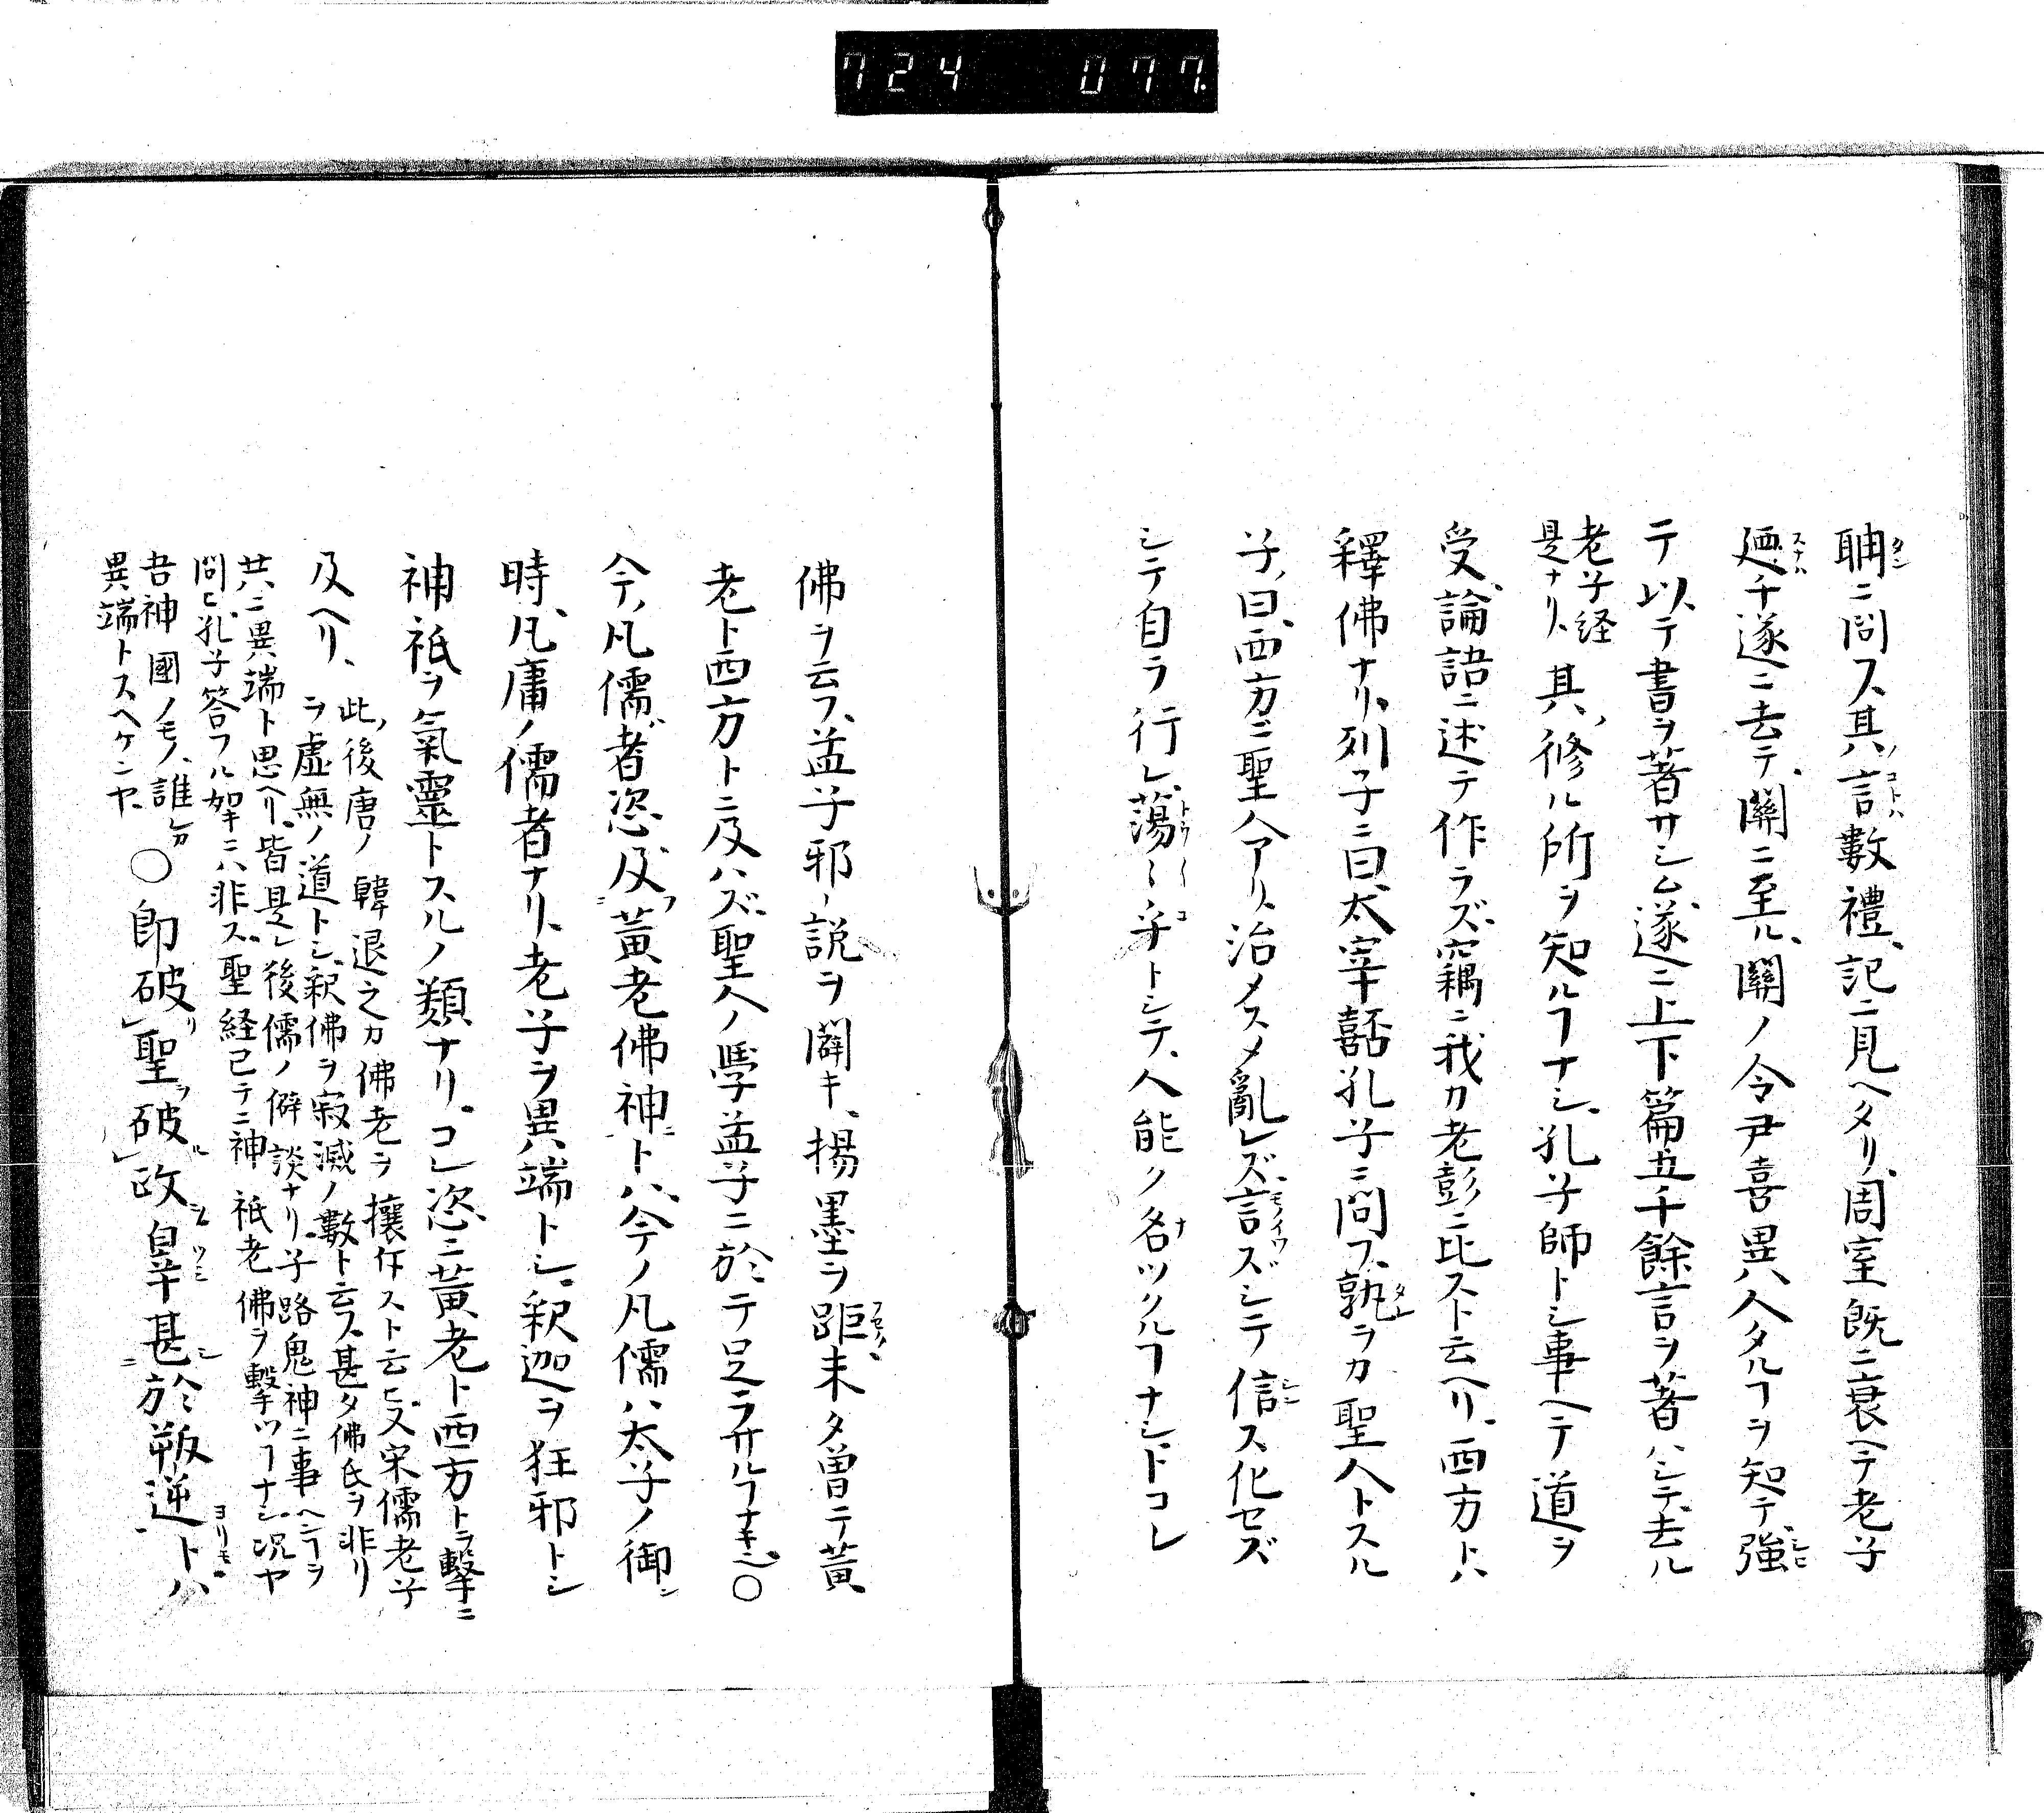 724 077
聃ニ問ス其言數禮記ニ見ヘタリ周室既ニ衰ヘテ老子
廼チ遂ニ去テ關ニ至ル關ノ令尹喜異人タルヿヲ知テ強
テ以テ書ヲ著サシム遂ニ上下篇五千餘言ヲ著ハシテ去ル
老子経
是ナリ
其修ル所ヲ知ルヿナシ孔子師トシ事ヘテ道ヲ
受論語ニ述テ作ラズ竊ニ我カ老彭ニ比スト云ヘリ西方トハ
釋佛ナリ列子ニ曰太宰嚭孔子ニ問フ孰ヲカ聖人トスル
子曰西方ニ聖人アリ治メスメ亂レズ言スシテ信ス化セズ
シテ自ラ行レ蕩〻乎トシテ人能ク名ツクルヿナシトコレ
佛ヲ云フ孟子邪説ヲ闢キ揚墨ヲ距未タ曽テ黃
老ト西方トニ及ハズ聖人ノ學孟子ニ於テ足ラサルヿナキ也○
今凡儒者恣及黃老佛神トハ今ノ凡儒ハ太子ノ御
時凡庸ノ儒者ナリ老子ヲ異端トシ釈迦ヲ狂邪トシ
神祇ヲ氣靈トスルノ類ナリコレ恣ニ黃老ト西方トヲ擊ニ
及ヘリ
此後唐ノ韓退之カ佛老ヲ攘斥スト云ヒ又宋儒老子
ヲ虚無ノ道トシ釈佛ヲ寂滅ノ數ト云フ甚タ佛氏ヲ非リ
共ニ異端ト思ヘリ皆是レ後儒ノ僻談ナリ子路鬼神ニ事ヘンヿヲ
問ヒ孔子答フル如キニハ非ス聖経已テニ神祇老佛ヲ擊ツヿナシ况ヤ
吾神國ノモノ誰レカ
異端トスヘケンヤ
○即破聖破政辠甚於叛逆トハ